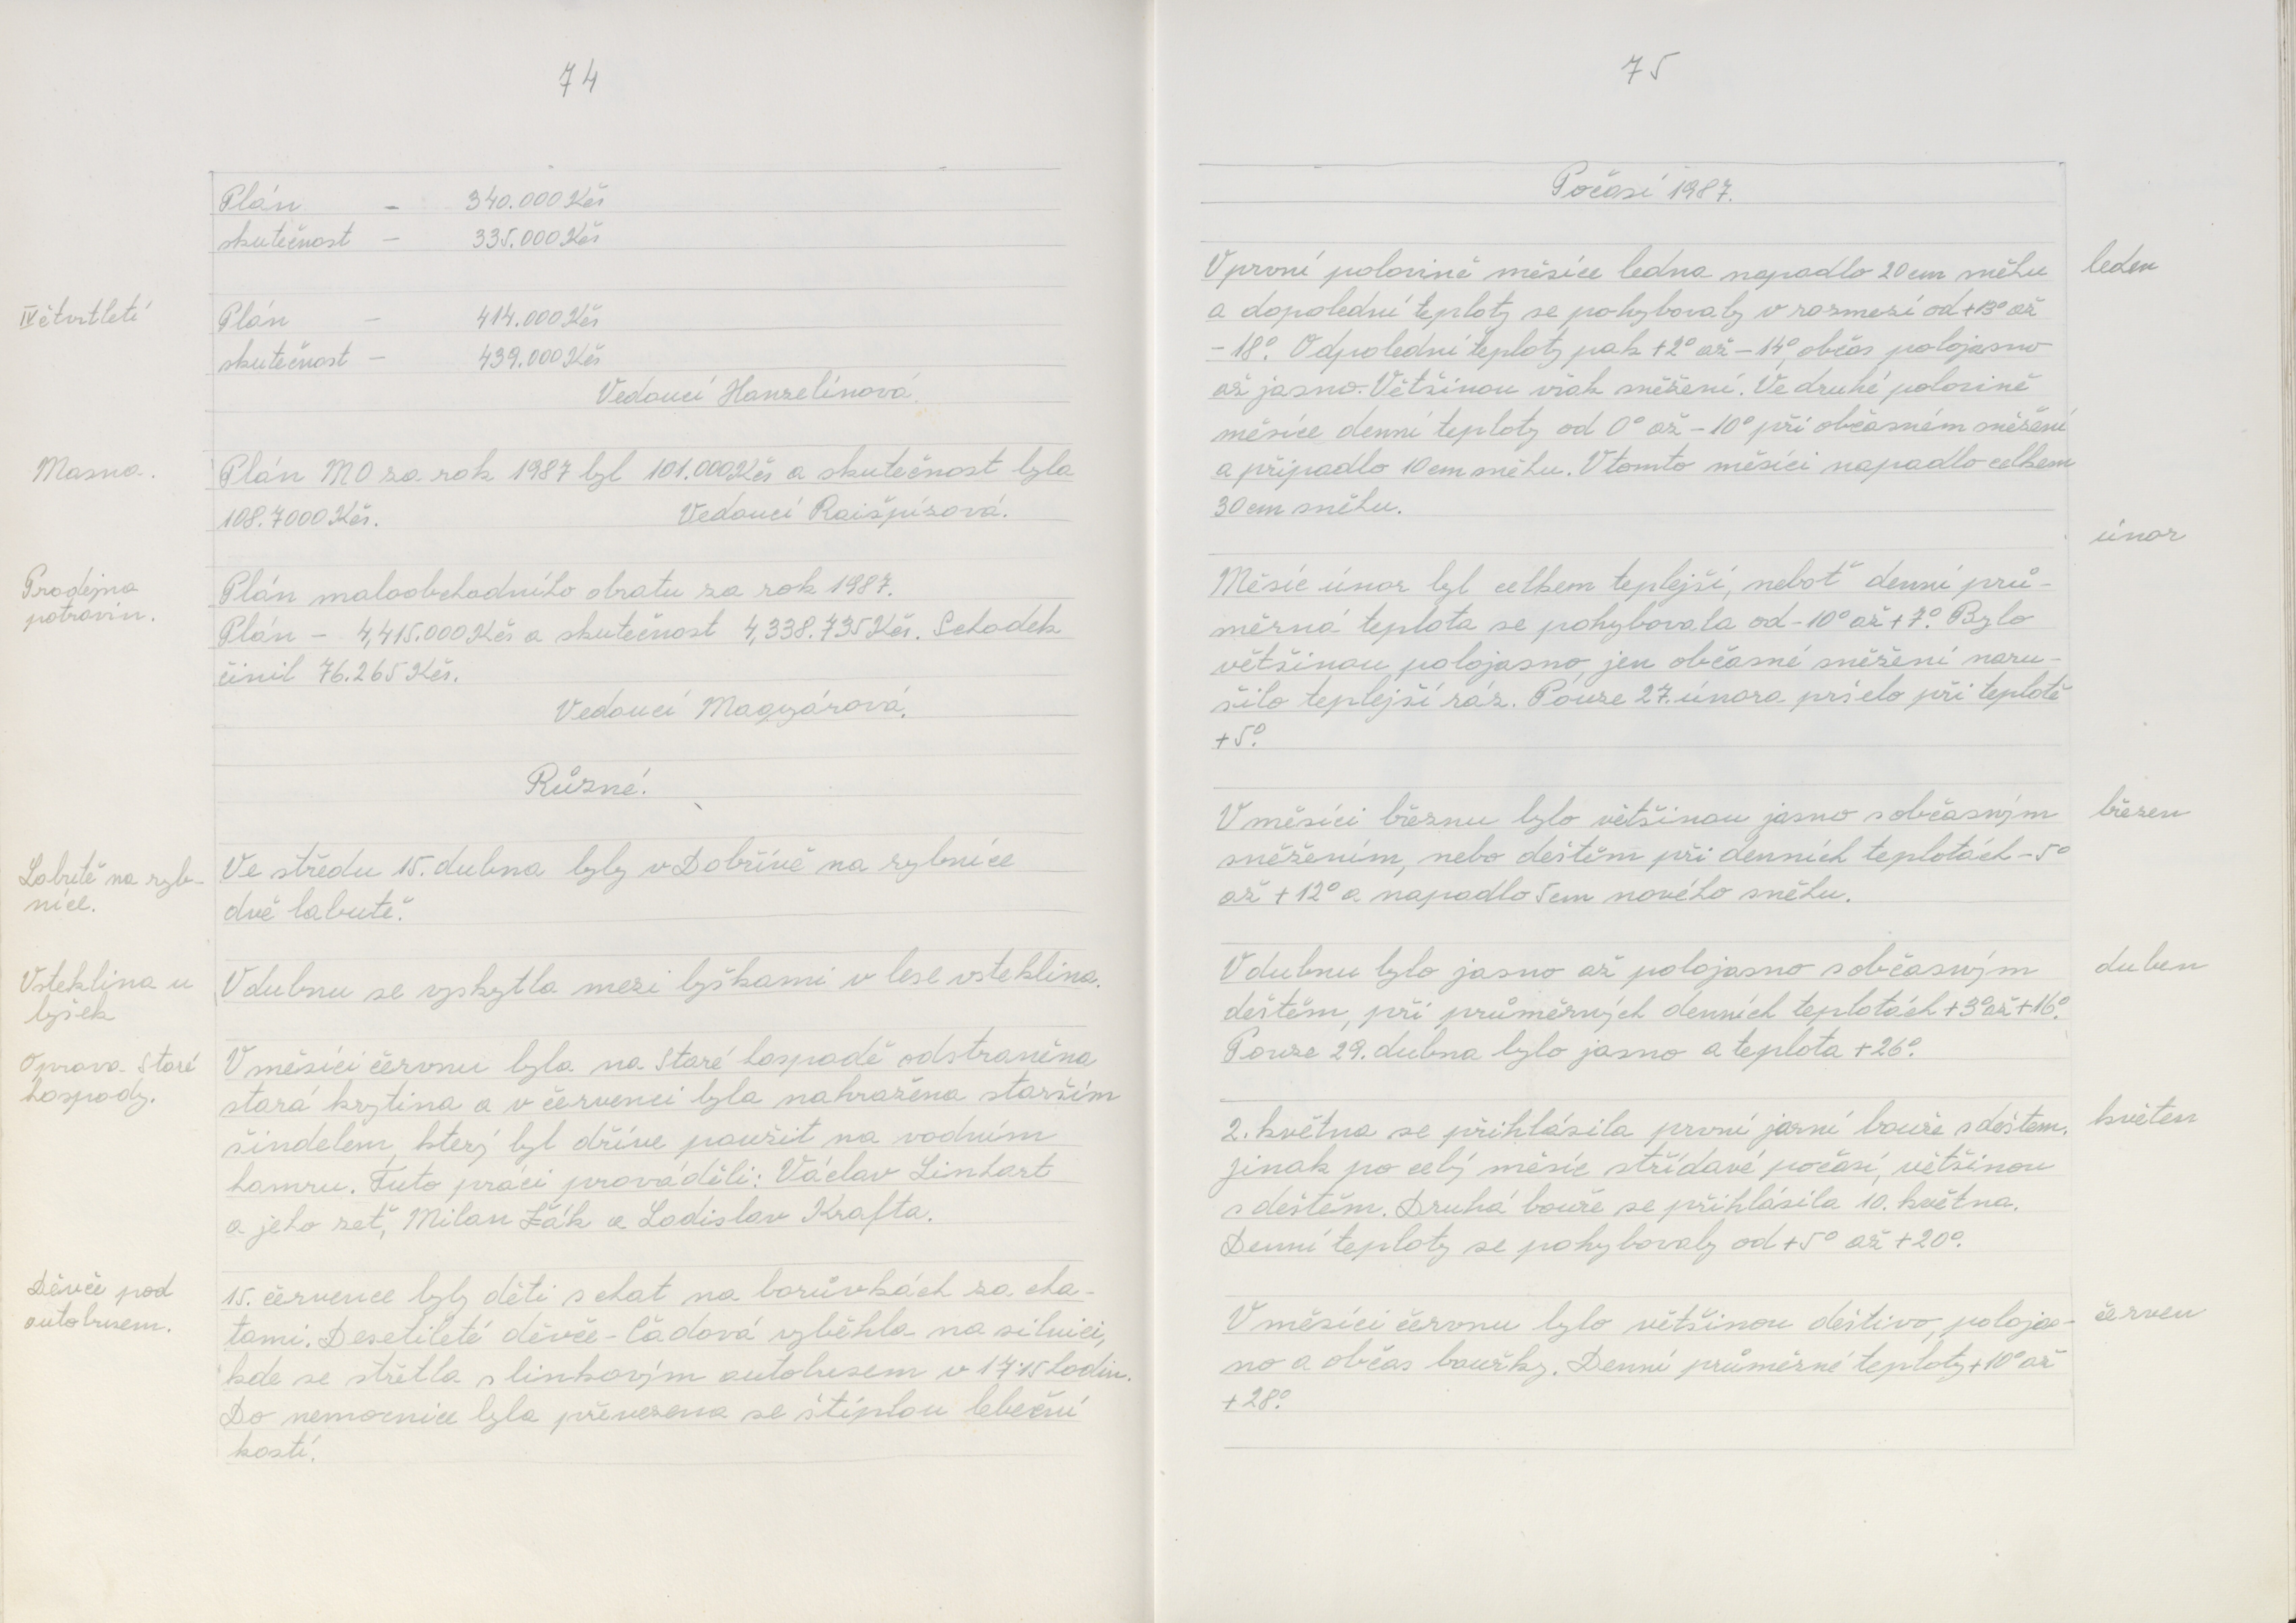 74
Plán - 340.000 Kčs
skutečnost - 335.000 Kčs
IV čtvrtletí
Plán - 414.000 Kčs
skutečnost - 439.000 Kčs
Vedoucí Hanzelínová.
Masna.
Plán MO za rok 1987 byl 101.000 Kčs a skutečnost byla
108.7000 Kčs. Vedoucí Raišpísová.
Prodejna
potravin.
Plán maloobchodního obratu za rok 1987.
Plán - 4,415.000 Kčs a skutečnost 4,338.735 Kčs. Schodek
činil 76.265 Kčs.
Vedoucí Magyárová.
Různé.
Labutě na ryb-
níce.
Ve středu 15. dubna byly v Dobřívě na rybníce
dvě labutě.
Vsteklina u
lyšek
V dubnu se vyskytla mezi lyškami v lese vsteklina.
Oprava Staré
hospody.
V měsíci červnu byla na Staré hospodě odstraněna
stará krytina a v červenci byla nahražena starším
šindelem, který byl dříve použit na vodním
hamru. Tuto práci prováděli: Václav Linhart
a jeho zeť, Milan Žák a Ladislav Krafta.
Děvče pod
autobusem.
15. července byly děti s chat na borůvkách za cha-
tami. Desetileté děvče - Čadová vyběhla na silnici,
kde se střetla s linkovým autobusem v 17.15 hodin.
Do nemocnice byla převezena se štíplou lebeční
kostí.
75
Počasí 1987.
leden
V první polovině měsíce ledna napadlo 20 cm sněhu
a dopolední teploty se pohybovaly v rozmezí od +13° až
-18°. Odpolední teploty pak +2° až -14°, občas polojasno
až jasno. Většinou však sněžení. Ve druhé polovině
měsíce denní teploty od 0° až -10° při občasném sněžení
a připadlo 10 cm sněhu. V tomto měsíci napadlo celkem
30 cm sněhu.
únor
Měsíc únor byl celkem teplejší, neboť denní prů-
měrná teplota se pohybovala od -10° až +7°. Bylo
většinou polojasno, jen občasné sněžení naru-
šilo teplejší ráz. Pouze 27. února pršelo při teplotě
+5°.
březen
V měsíci březnu bylo většinou jasno s občasným
sněžením, nebo deštěm při denních teplotách -5°
až +12° a napadlo 5 cm nového sněhu.
duben
V dubnu bylo jasno až polojasno s občasným
deštěm, při průměrných denních teplotách +3° až +16°.
Pouze 29. dubna bylo jasno a teplota +26°.
květen
2. května se přihlásila první jarní bouře s deštem.
Jinak po celý měsíc střídavé počasí, většinou
s deštěm. Druhá bouře se přihlásila 10. května.
Denní teploty se pohybovaly od +5° až +20°.
červen
V měsíci červnu bylo většinou deštivo, polojas-
no a občas bouřky. Denní průměrné teploty +10° až
+28°.